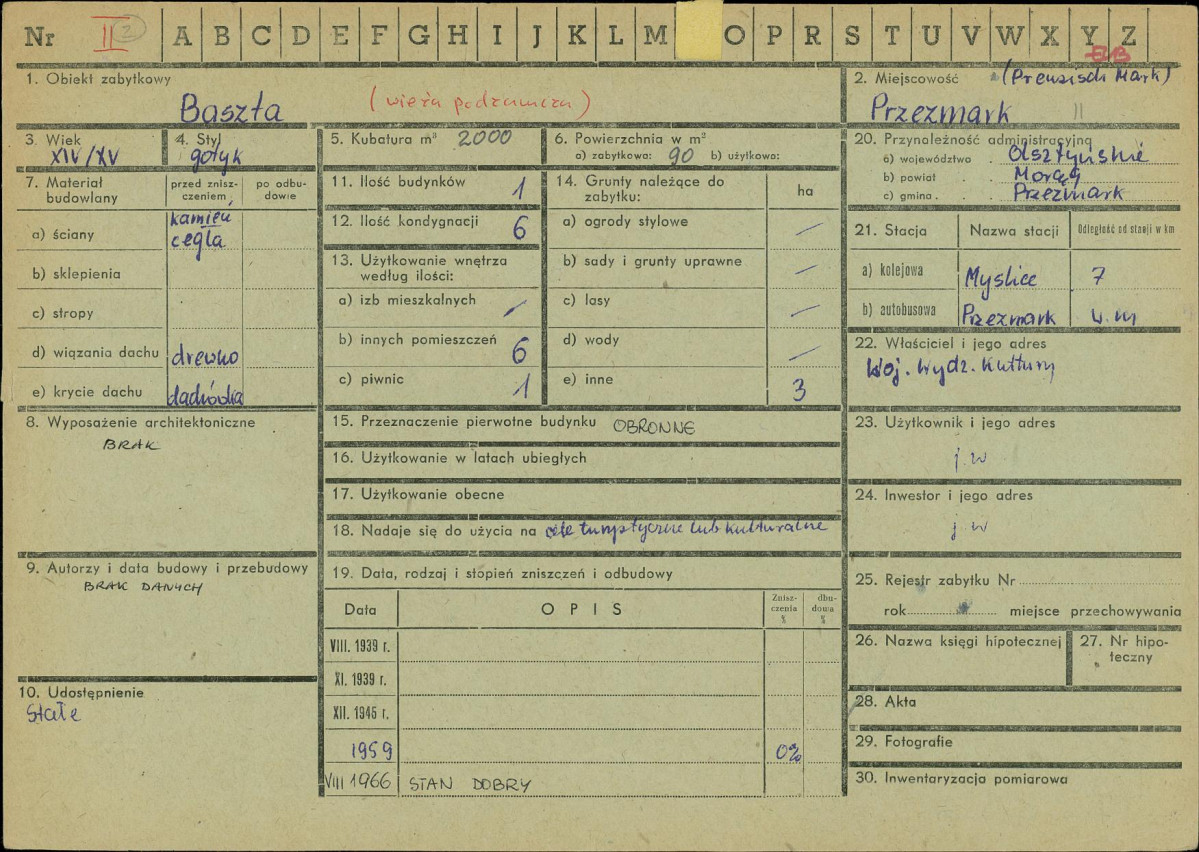 Nr II 2 A B C D E F G H I J K L M O P R S T U V W X Y Z
EB
1. Obiekt zabytkowy
Baszta (wieża podzamcza)
2. Miejscowość (Preusisch Mark)
Przezmark II
3. Wiek
XIV/XV
4. Styl
gotyk
5. Kubatura m³ 2000
6. Powierzchnia w m²
a) zabytkowa: 90 b) użytkowa:
7. Materiał budowlany
przed zniszczeniem
po odbudowie
a) ściany kamień, cegła
b) sklepienia
c) stropy
d) wiązania dachu drewno
e) krycie dachu dachówka
8. Wyposażenie architektoniczne
BRAK
9. Autorzy i data budowy i przebudowy
BRAK DANYCH
10. Udostępnienie
Stałe
11. Ilość budynków 1
12. Ilość kondygnacji 6
13. Użytkowanie wnętrza
według ilości:
a) izb mieszkalnych /
b) innych pomieszczeń 6
c) piwnic 1
14. Grunty należące do
zabytku: ha
a) ogrody stylowe /
b) sady i grunty uprawne /
c) lasy /
d) wody /
e) inne 3
15. Przeznaczenie pierwotne budynku OBRONNE
16. Użytkowanie w latach ubiegłych
17. Użytkowanie obecne
18. Nadaje się do użycia na cele turystyczne lub kulturalne
19. Data, rodzaj i stopień zniszczeń i odbudowy
Data OPIS Zniszczenia % dbudowa %
VIII. 1939 r.
XI. 1939 r.
XII. 1945 r.
1959 0%
VIII 1966 STAN DOBRY
20. Przynależność administracyjna
a) województwo Olsztyńskie
b) powiat Morąg
c) gmina Przezmark
21. Stacja Nazwa stacji Odległość od stacji w km
a) kolejowa Myslice 7
b) autobusowa Przezmark w m
22. Właściciel i jego adres
Woj. Wydz. Kultury
23. Użytkownik i jego adres
j. w
24. Inwestor i jego adres
j. w
25. Rejestr zabytku Nr
rok miejsce przechowywania
26. Nazwa księgi hipotecznej
27. Nr hipoteczny
28. Akta
29. Fotografie
30. Inwentaryzacja pomiarowa